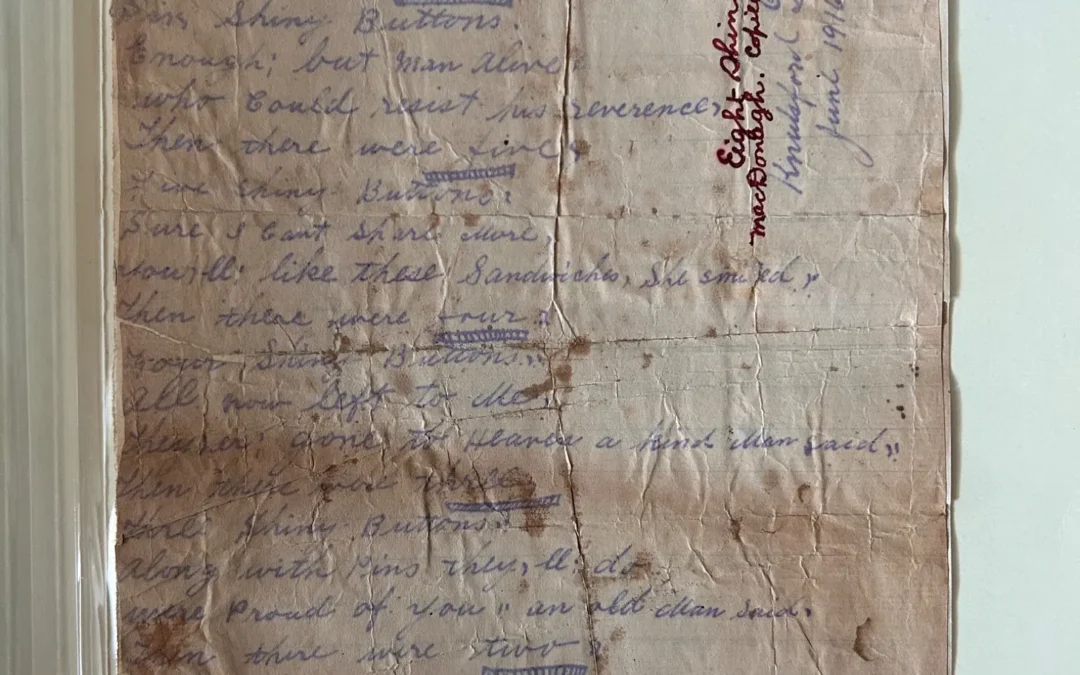 Six Shiny Buttons.
Enough; but Man Alive
who Could resist his reverence?
Then there were five
Five Shiny Buttons
Sure I Cant Share More,
you,ll like these Sandwiches, She smiled,,
Then there were four
Shiny Buttons
All now Left to Me
gone to Heaven a kind Man said,,
Then there were three
Shiny Buttons
Along with Pins they,ll do
were Proud of you " an old Man said.
Then there were two
Eight Shin
MacDonagh. Copie
Knutsford
June 1916